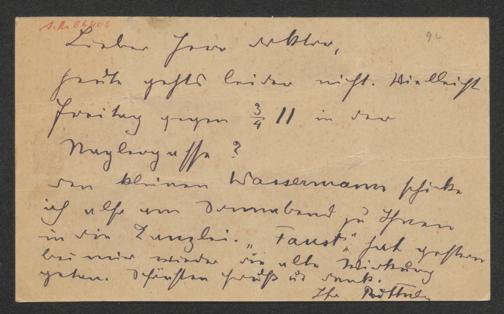 94
Lieber Herr Doktor,
heute gehts leider nicht. Vielleicht
Freitag gegen 3/4 11 in der
Naglergasse?
Den kleinen Wassermann schicke
ich also am Sonnabend zu Ihnen
in die Kanzlei. „Faust“ hat gestern
bei mir wieder die alte Wirkung
getan. Schönsten Gruß u Dank.
Ihr